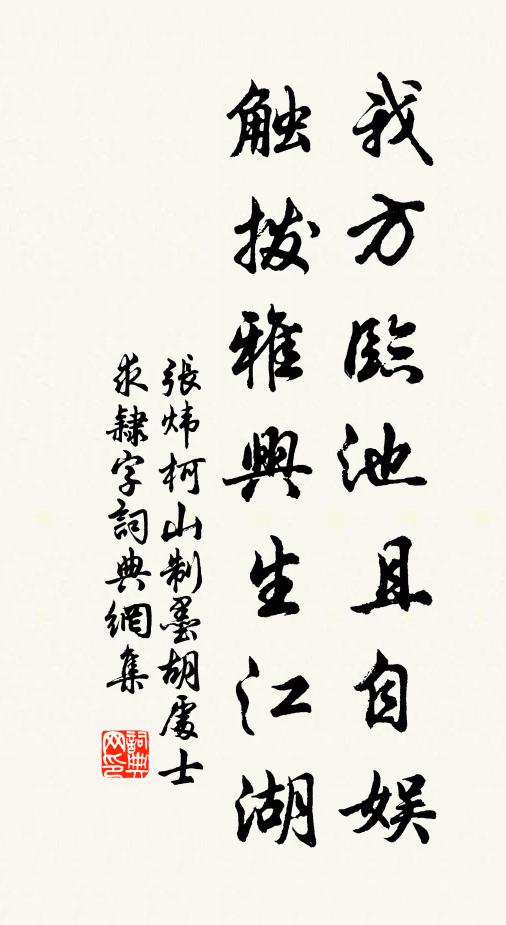 我方臨池且自娛
触撥雅興生江湖
張煒柯山制墨胡處士
求隸字詞典網集
詞典
网印